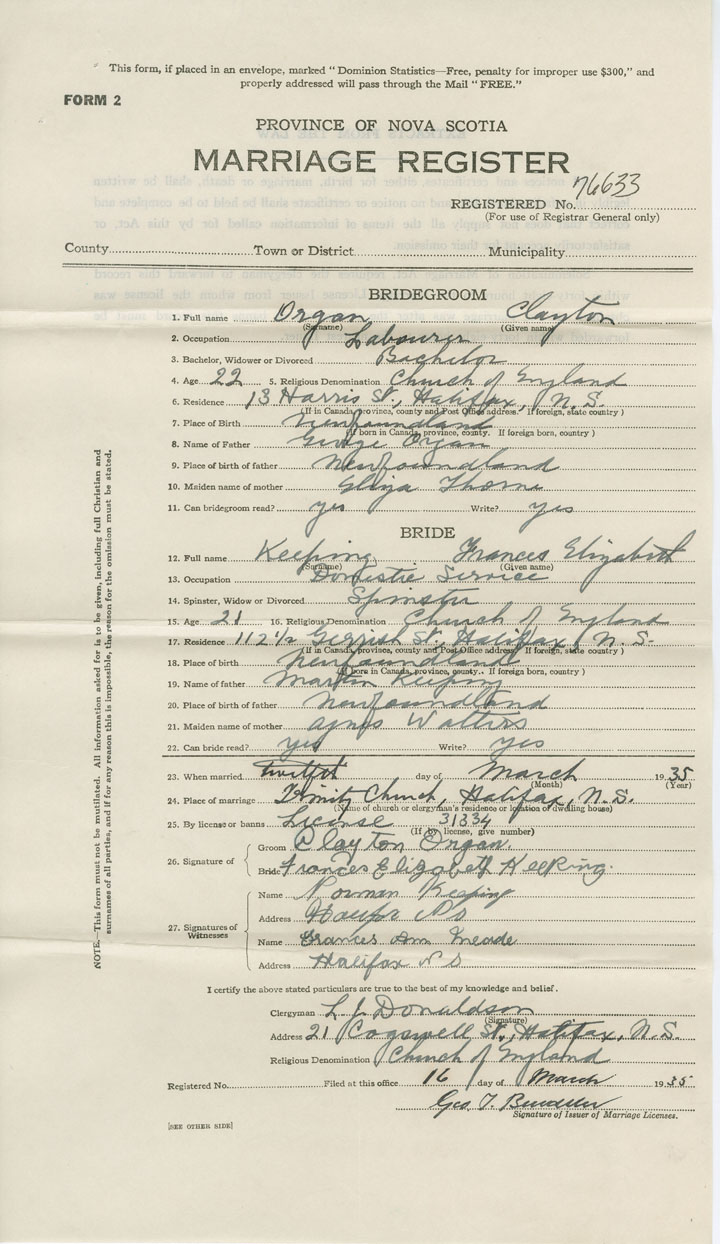 This form, if placed in an envelope, marked "Dominion Statistics—Free, penalty for improper use $300," and
properly addressed will pass through the Mail "FREE."
FORM 2
PROVINCE OF NOVA SCOTIA
MARRIAGE REGISTER
REGISTERED No. 76633
(For use of Registrar General only)
County Town or District Municipality
BRIDEGROOM
1. Full name Organ Clayton
(Surname) (Given name)
2. Occupation Labourer
3. Bachelor, Widower or Divorced Bachelor
4. Age 22 5. Religious Denomination Church of England
6. Residence 13 Harris St., Halifax, N.S.
(If in Canada, province, county and Post Office address. If foreign, state country)
7. Place of Birth Newfoundland
(If born in Canada, province, county. If foreign born, country)
8. Name of Father George Organ
9. Place of birth of father Newfoundland
10. Maiden name of mother Eliza Thorne
11. Can bridegroom read? yes Write? yes
BRIDE
12. Full name Keeping Frances Elizabeth
(Surname) (Given name)
13. Occupation Domestic Service
14. Spinster, Widow or Divorced Spinster
15. Age 21 16. Religious Denomination Church of England
17. Residence 112 1/2 Gerrish St., Halifax, N.S.
(If in Canada, province, county and Post Office address. If foreign, state country)
18. Place of birth Newfoundland
(If born in Canada, province, county. If foreign born, country)
19. Name of father Martin Keeping
20. Place of birth of father Newfoundland
21. Maiden name of mother Agnes Walters
22. Can bride read? yes Write? yes
23. When married twelfth day of March 1935
(Month) (Year)
24. Place of marriage Trinity Church, Halifax, N.S.
(Name of church or clergyman's residence or location of dwelling house)
25. By license or banns License 31334
(If by license, give number)
26. Signature of Groom Clayton Organ.
Bride Frances Elizabeth Keeping.
27. Signatures of Witnesses
Name Norman Keeping
Address Halifax NS
Name Frances Ann Meade
Address Halifax N S
I certify the above stated particulars are true to the best of my knowledge and belief.
Clergyman L. J. Donaldson
(Signature)
Address 21 Cogswell St., Halifax, N.S.
Religious Denomination Church of England
Registered No. Filed at this office 16 day of March 1935
Geo. T.
Signature of Issuer of Marriage Licenses.
[SEE OTHER SIDE]
NOTE.—This form must not be mutilated. All information asked for is to be given, including full Christian and
surnames of all parties, and if for any reason this is impossible, the reason for the omission must be stated.